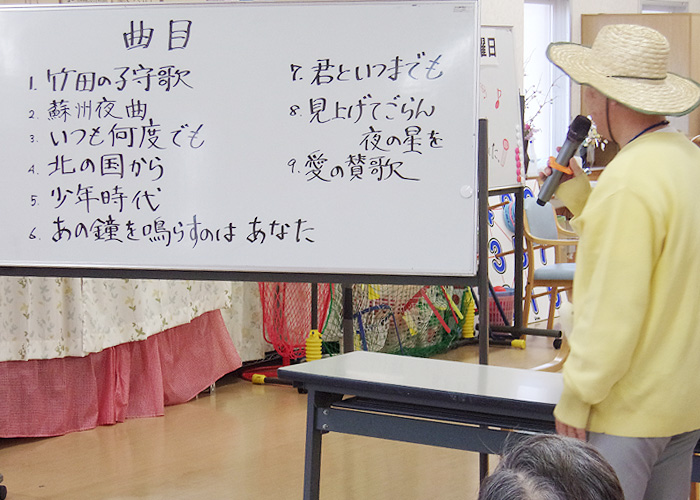 曲目
1. 竹田の子守歌
2. 蘇州夜曲
3. いつも何度でも
4. 北の国から
5. 少年時代
6. あの鐘を鳴らすのは あなた
7. 君といつまでも
8. 見上げてごらん
夜の星を
9. 愛の賛歌
曜日